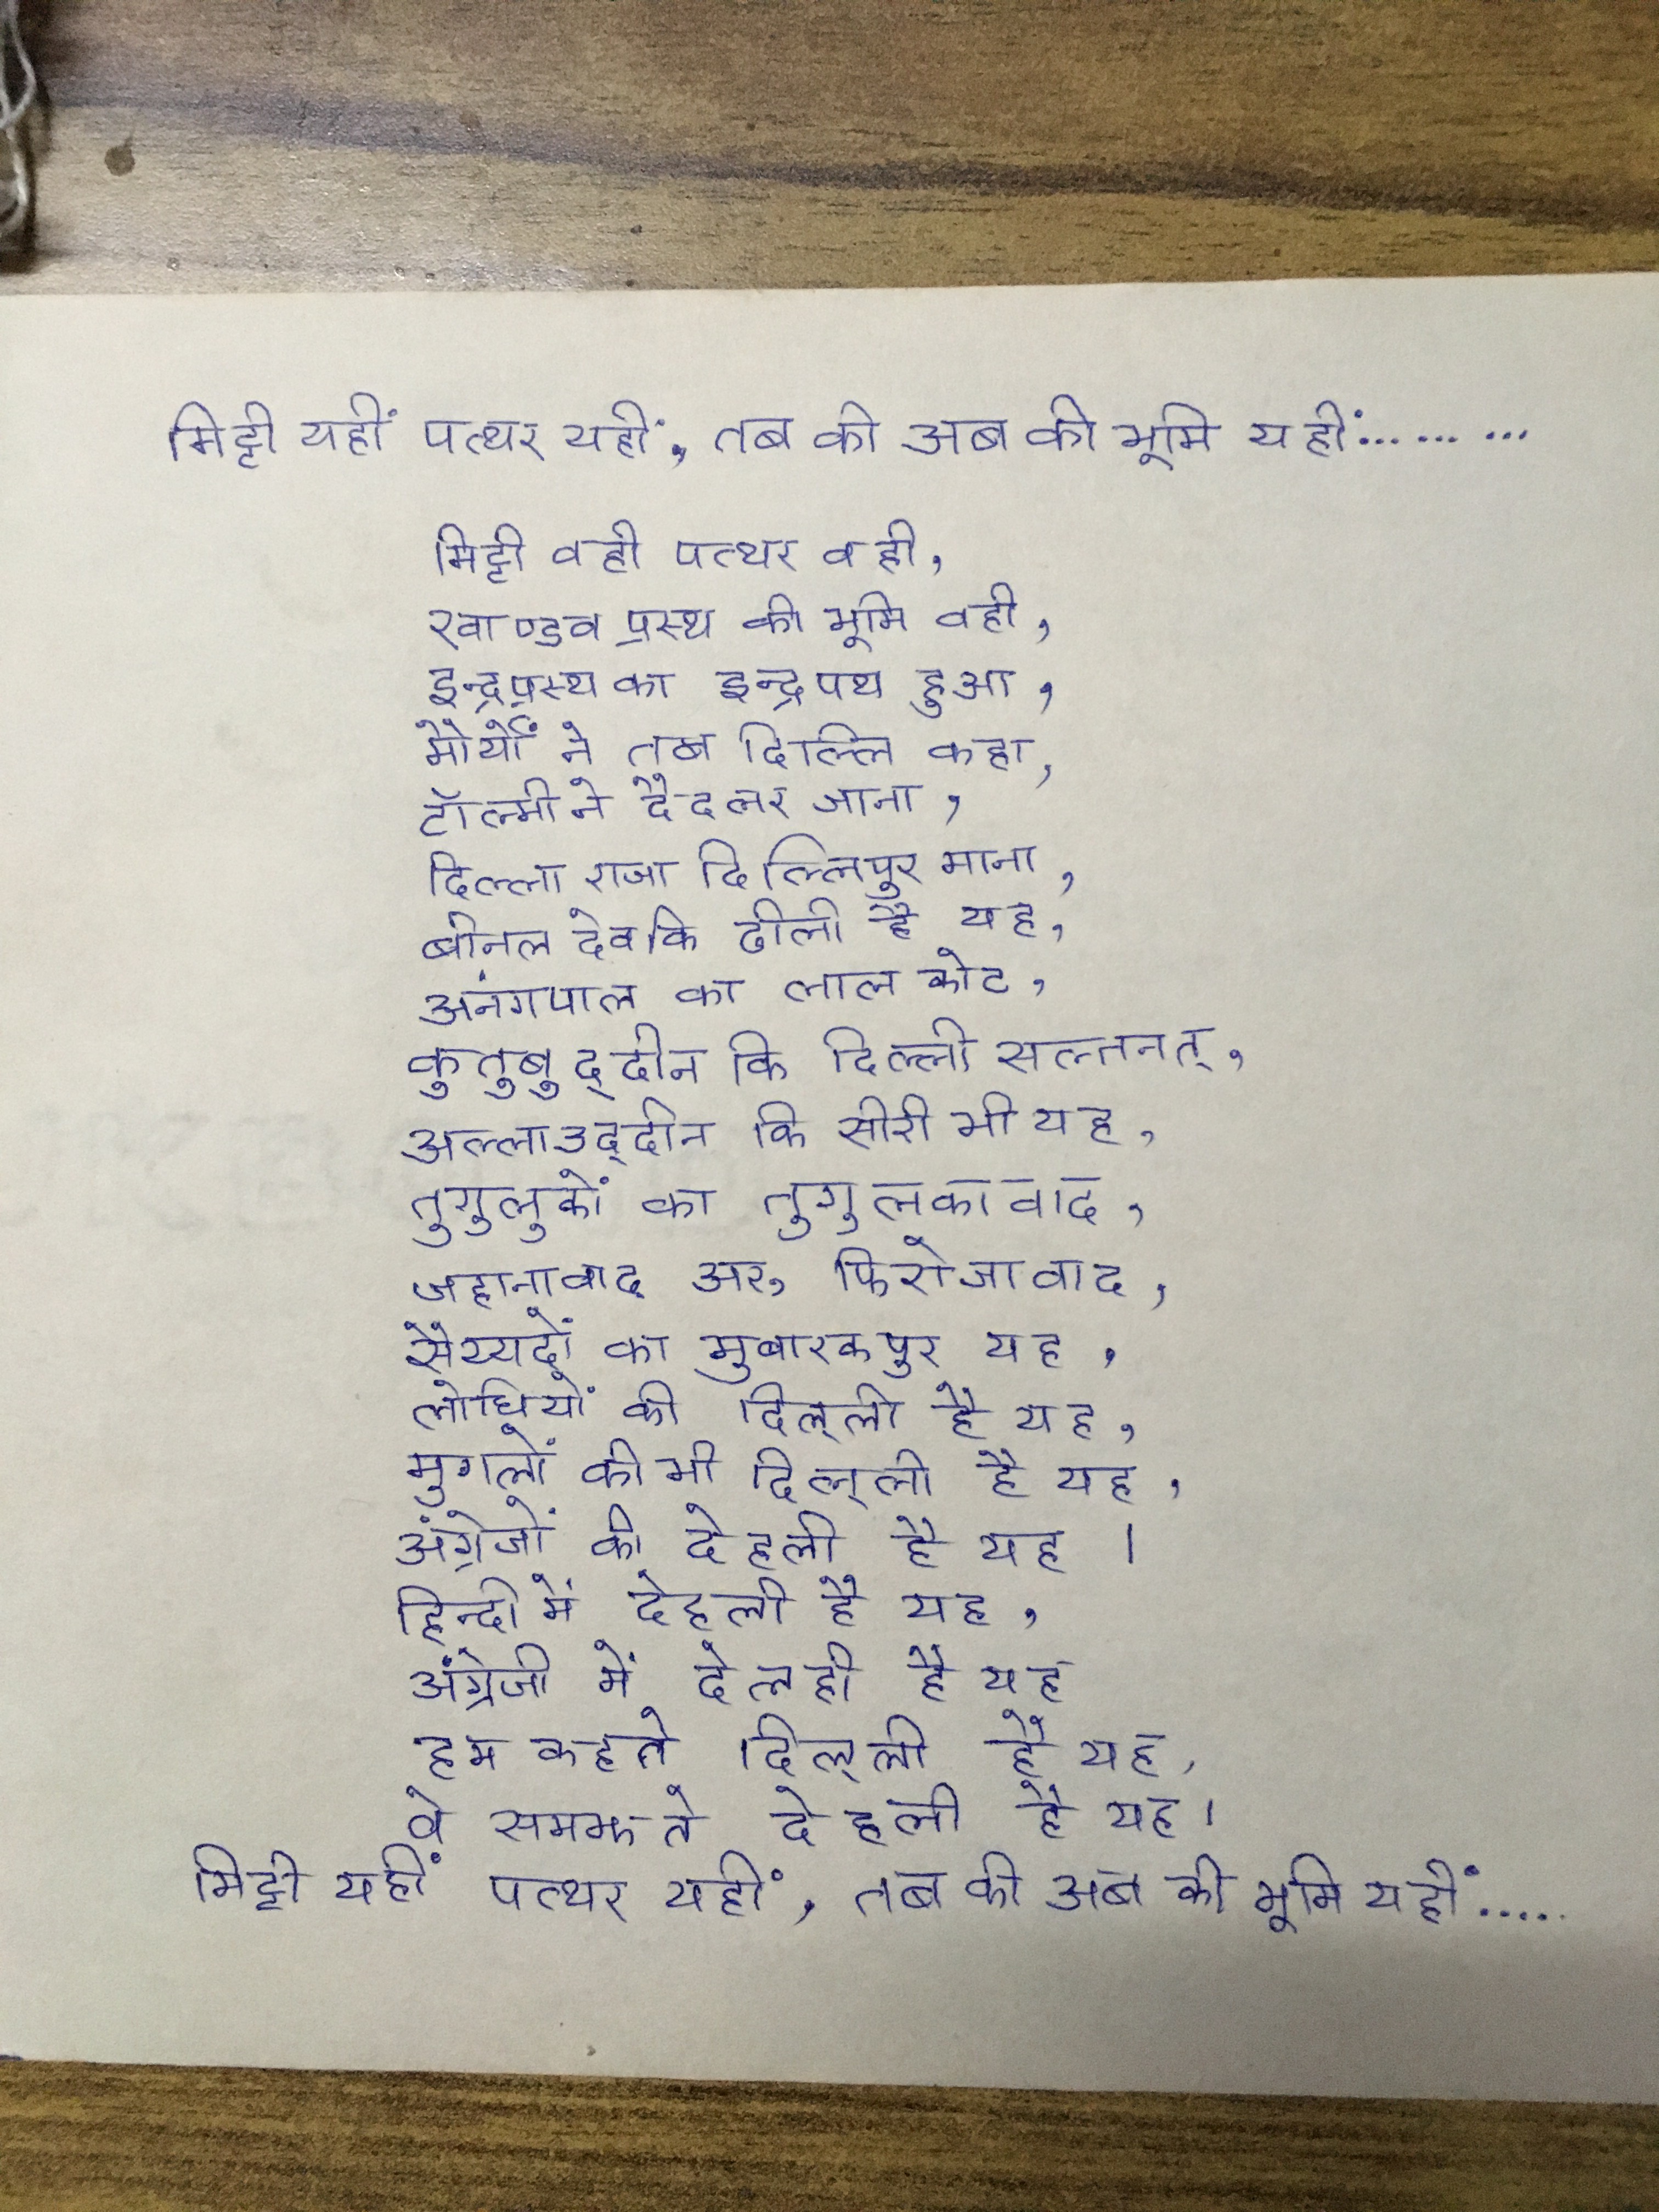 मिट्टी यहीं पत्थर यहीं, तब की अब की भूमि यहीं... ... ...
मिट्टी वही पत्थर वही,
खाण्डव प्रस्थ की भूमि वही,
इन्द्रप्रस्थ का इन्द्रपथ हुआ,
मौर्यों ने तब दिल्लि कहा,
टॉल्मी ने दैदलर जाना,
दिल्ला राजा दिल्लिपुर माना,
बीनल देव कि ढीली है यह,
अनंगपाल का लाल कोट,
कुतुबुद्दीन कि दिल्ली सल्तनत्,
अल्लाउद्दीन कि सीरी भी यह,
तुगुलुकों का तुगुलकावाद,
जहानावाद् अरु फिरोजावाद,
सैय्यदों का मुबारकपुर यह,
लोधियों की दिल्ली है यह,
मुगलों की भी दिल्ली है यह,
अंग्रेजों की देहली है यह ।
हिन्दी में देहली है यह,
अंग्रेजी में देलही है यह
हम कहते दिल्ली है यह,
वे समझते देहली है यह।
मिट्टी यहीं पत्थर यहीं, तब की अब की भूमि यहीं.....